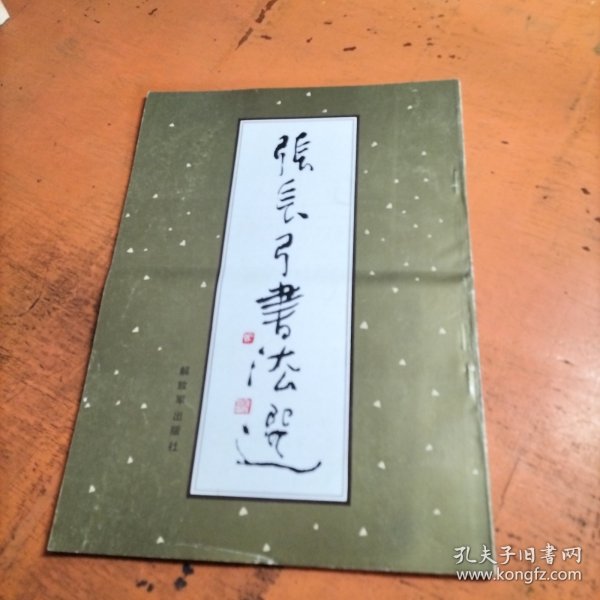 張長弓書法選
解放军出版社
孔夫子旧書网
www.kongfz.com